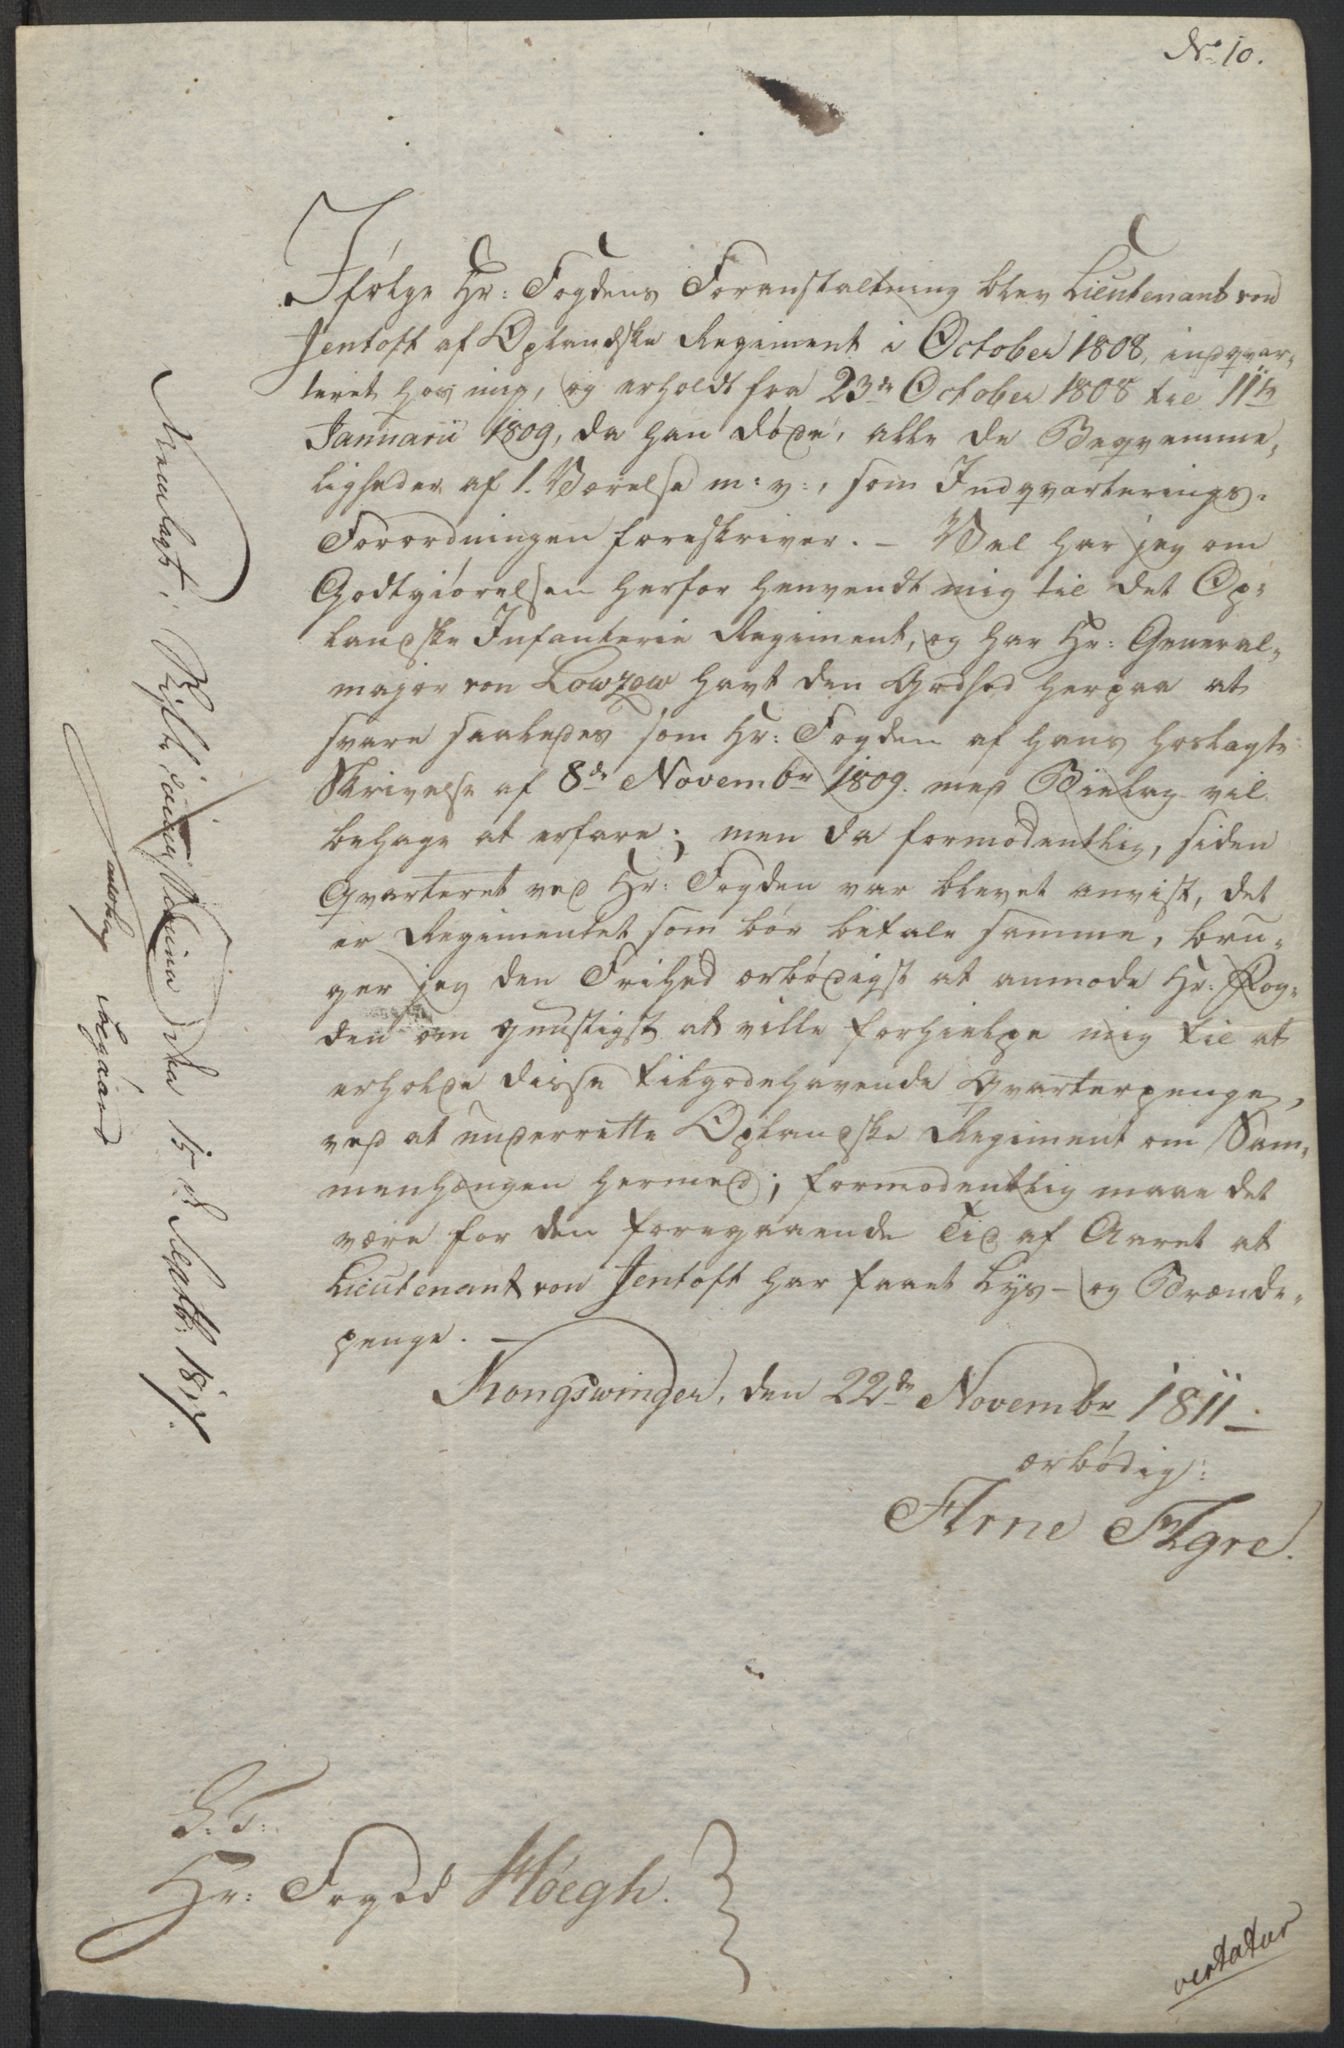 No 10.
Ifølge Hr: Fogdens Foranstaltning blev Lieutenant von
Jentoft af Oplandske Regiment i October 1808, indqvar-
teret hos mig, og erholdt fra 23de October 1808 til 11te
Januarii 1809, da han døde, alle de Beqvemme-
ligheder af 1. Værelse m: v:, som Indqvarterings-
Forordningen foreskriver. – Vel har jeg om
Godtgiørelsen herfor henvendt mig til det Op-
landske Infanterie Regiment, og har Hr: General-
major von Lowzow havt den Godhed herpaa at
svare saaledes som Hr: Fogden af hans hoslagte
Skrivelse af 8de Novembr 1809. med Bielag vil
behage at erfare; men da formodentlig, siden
Qvarteret ved Hr: Fogden var blevet anvist, det
er Regimentet som bør betale samme, bru-
ger jeg den Frihed ærbødigst at anmode Hr: Fog-
den om gunstigst at ville forhielpe mig til at
erholde disse tilgodehavende Qvarterpenge,
ved at underrette Oplandske Regiment om Sam-
menhængen hermed; formodentlig maae det
være for den foregaaende Tid af Aaret at
Lieutenant von Jentoft har faaet Lys- og Brænde-
penge. –
Kongswinger, den 22de Novembr 1811
ærbødig:
Arne Agre.
S: T:
Hr: Foged Høegh.
vertatur
Fremlagt i den 15de 1817.